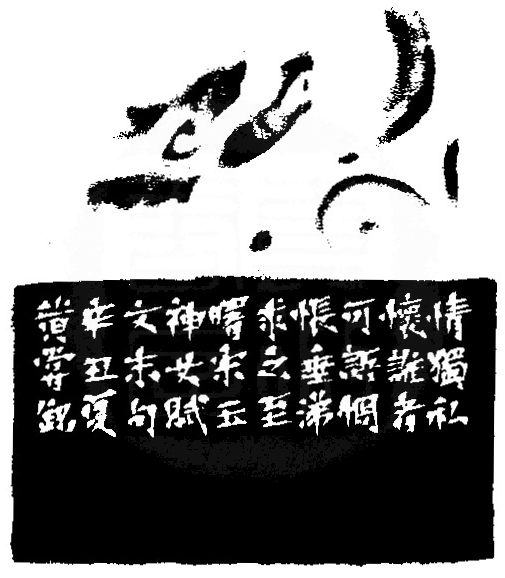 情獨私
懷誰者
可語惆
悵垂涕
求之至
曙宋玉
神女賦
文末句
辛丑夏
黃